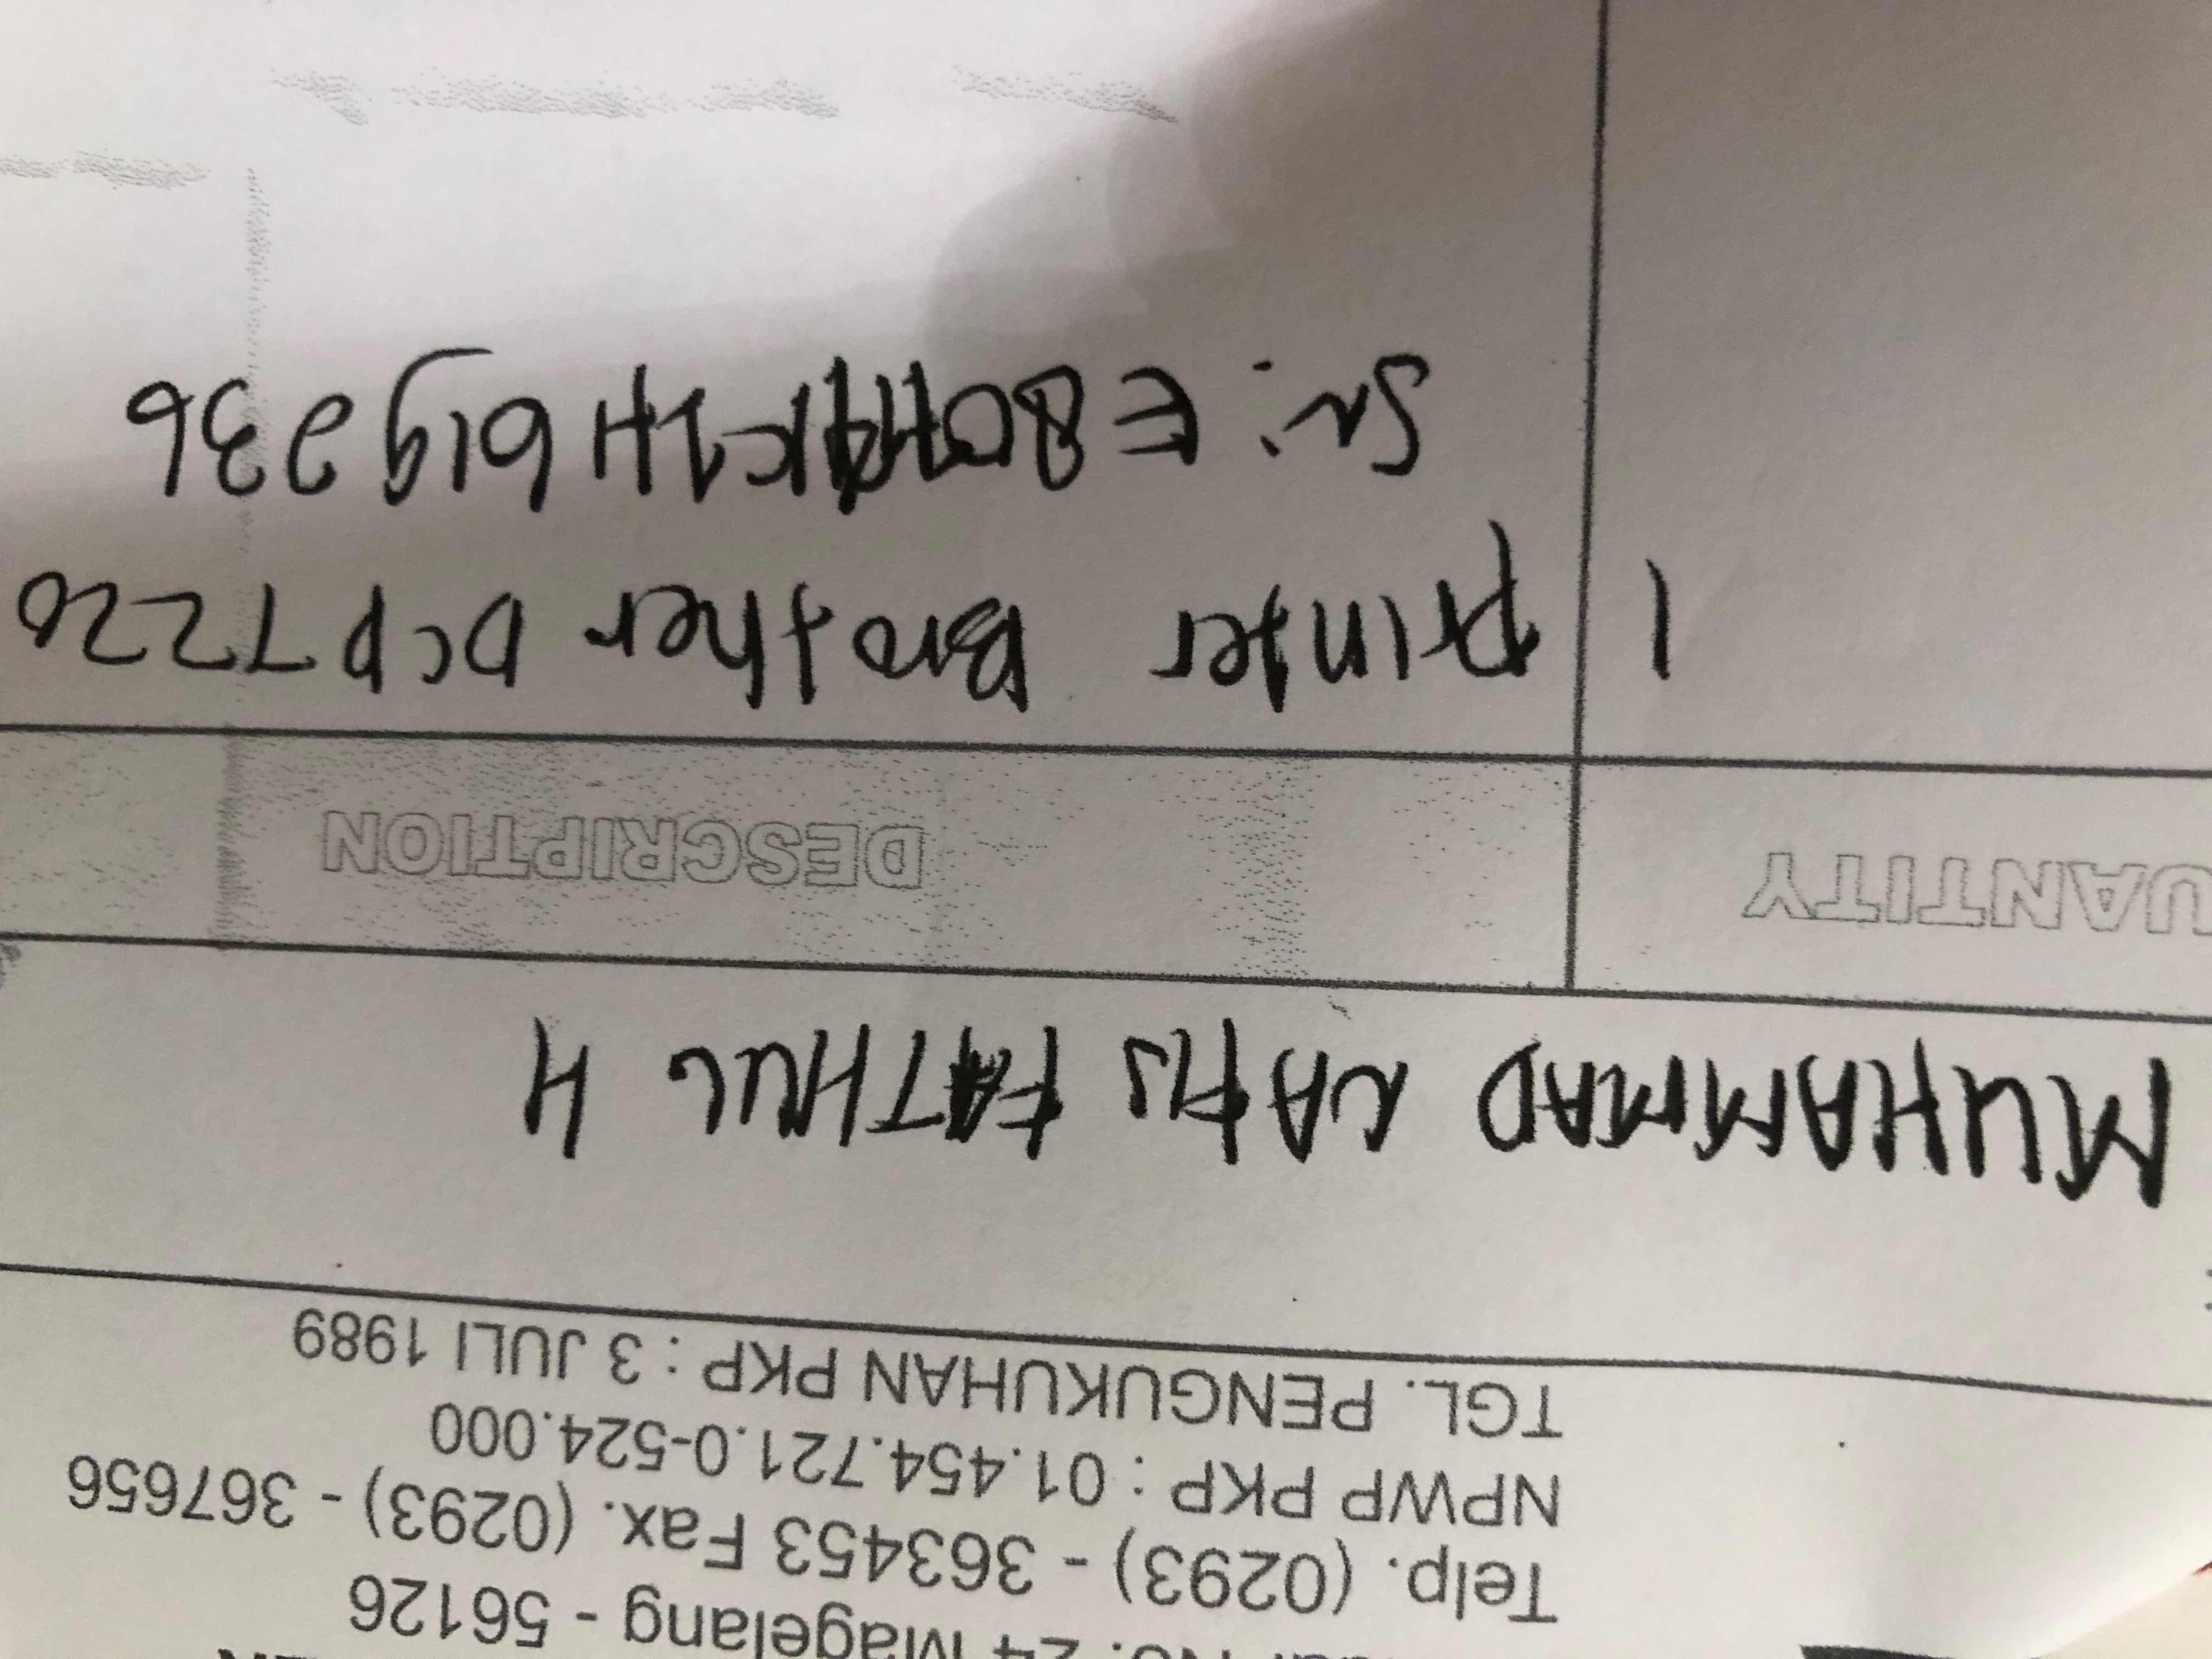 No. 24 Magelang - 56126
Telp. (0293) - 363453 Fax. (0293) - 367656
NPWP PKP : 01.454.721.0-524.000
TGL. PENGUKUHAN PKP : 3 JULI 1989
MUHAMMAD NAFIS FATHUL H
UANTITY DESCRIPTION
1 Printer Brother DCP T220
Sn: